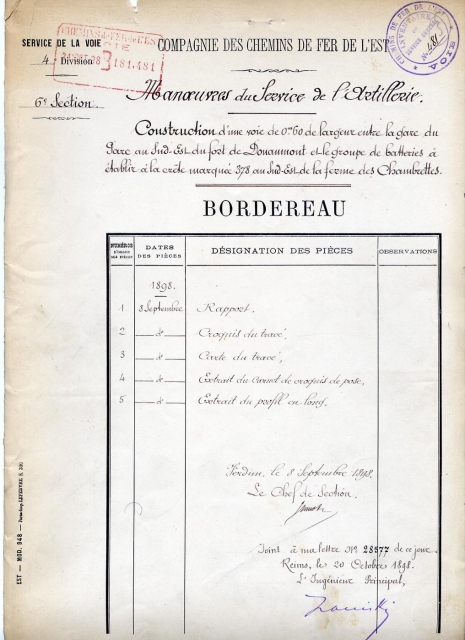 SERVICE DE LA VOIE
4e Division
6e Section
CHEMINS DE FER DE L'EST
181.481
COMPAGNIE DES CHEMINS DE FER DE L'EST
CHEMINS DE FER DE L'EST
INVENTAIRE
No 481
Manœuvres du Service de l'Artillerie.
Construction d'une voie de 0m60 de largeur entre la gare du
Parc au Sud-Est du fort de Douaumont et le groupe de batteries à
établir à la crête marquée 378 au Sud-Est de la ferme des Chambrettes.
BORDEREAU
NUMÉROS D'ORDRE DES PIÈCES
DATES DES PIÈCES
DÉSIGNATION DES PIÈCES
OBSERVATIONS
1898.
1 8 Septembre Rapport.
2 — do — Croquis du tracé.
3 — do — Carte du tracé.
4 — do — Extrait du carnet de croquis de pose.
5 — do — Extrait du profil en long.
Verdun, le 8 Septembre 1898.
Le Chef de Section.
Joint à ma lettre No 28577 de ce jour.
Reims, le 20 Octobre 1898.
L'Ingénieur Principal,
EST — MOD. 948